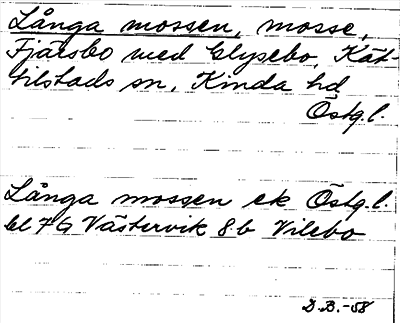 Långa mossen, mosse,
Fjärsbo med Glysebo, Kät-
tilstads sn, Kinda hd
Östg.l.
Långa mossen ek Östg.l.
bl 7G Västervik 8 b Vilebo
D.B.-58